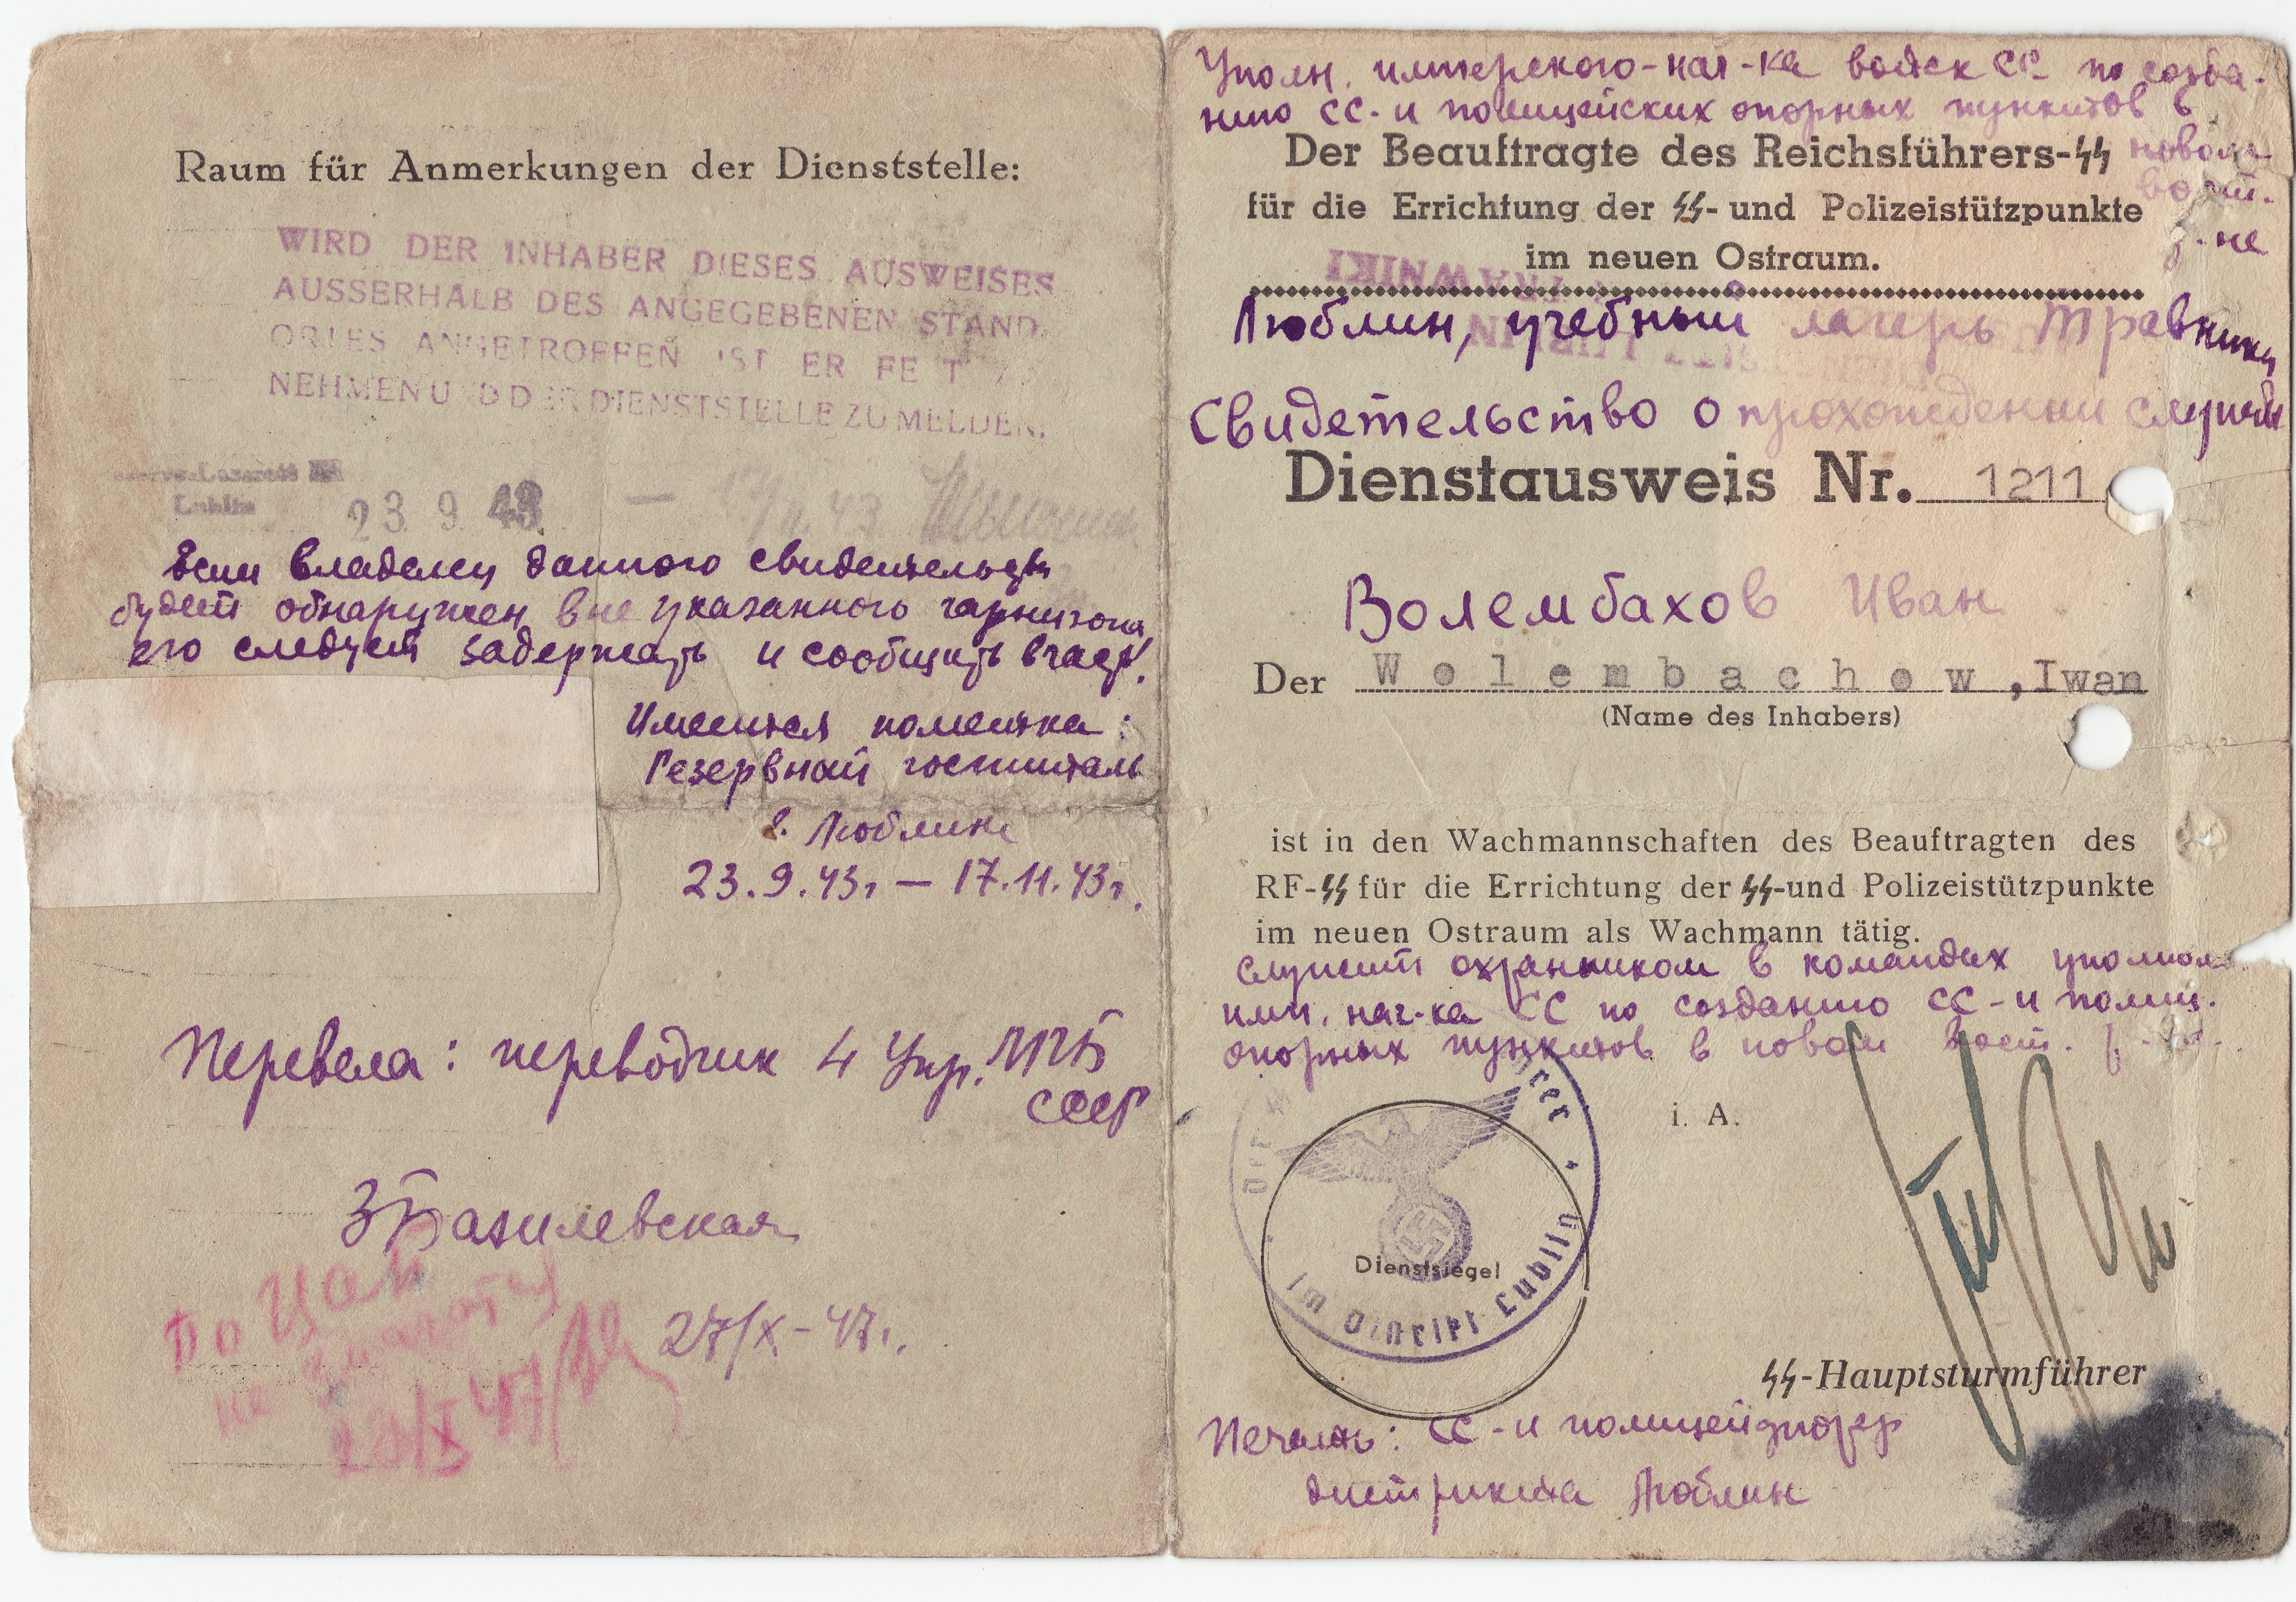 Raum für Anmerkungen der Dienststelle:
WIRD DER INHABER DIESES AUSWEISES
AUSSERHALB DES ANGEGEBENEN STAND.
ORTES ANGETROFFEN IST ER FE T
NEHMEN U D DER DIENSTSTELLE ZU MELDEN.
Lublin
23 9. 43 —
Если владелец данного свидетельств
будет обнаружен вне указанного гарнизона
его следует задержать и сообщить в част.
Имеется пометка:
Резервный госпиталь
г. Люблин
23.9.43г — 17.11.43г.
Перевела: переводчик 4 Упр. МГБ
СССР
ЗБазилевская
27/X-47г.
По
не
28/X 47
Уполн. имперского-нач-ка войск СС по созда-
нию СС-и полицейских опорных пунктов в
новом
вост.
р-не
Der Beauftragte des Reichsführers-SS
für die Errichtung der SS- und Polizeistützpunkte
im neuen Ostraum.
TRAWNIKI
LUBLIN
Люблин, учебный лагерь Травники
Свидетельство о прохождении службы
Dienstausweis Nr. 1211
Волембахов Иван
Der Wolembachow, Iwan
(Name des Inhabers)
ist in den Wachmannschaften des Beauftragten des
RF-SS für die Errichtung der SS-und Polizeistützpunkte
im neuen Ostraum als Wachmann tätig.
служит охранником в командах уполном
имп. нач-ка СС по созданию СС-и полиц.
опорных пунктов в новом вост.
i. A.
Der SS rer
im Distrikt Lublin
Dienstsiegel
SS-Hauptsturmführer
Печать: СС-и полицейфюрер
дистрикта Люблин